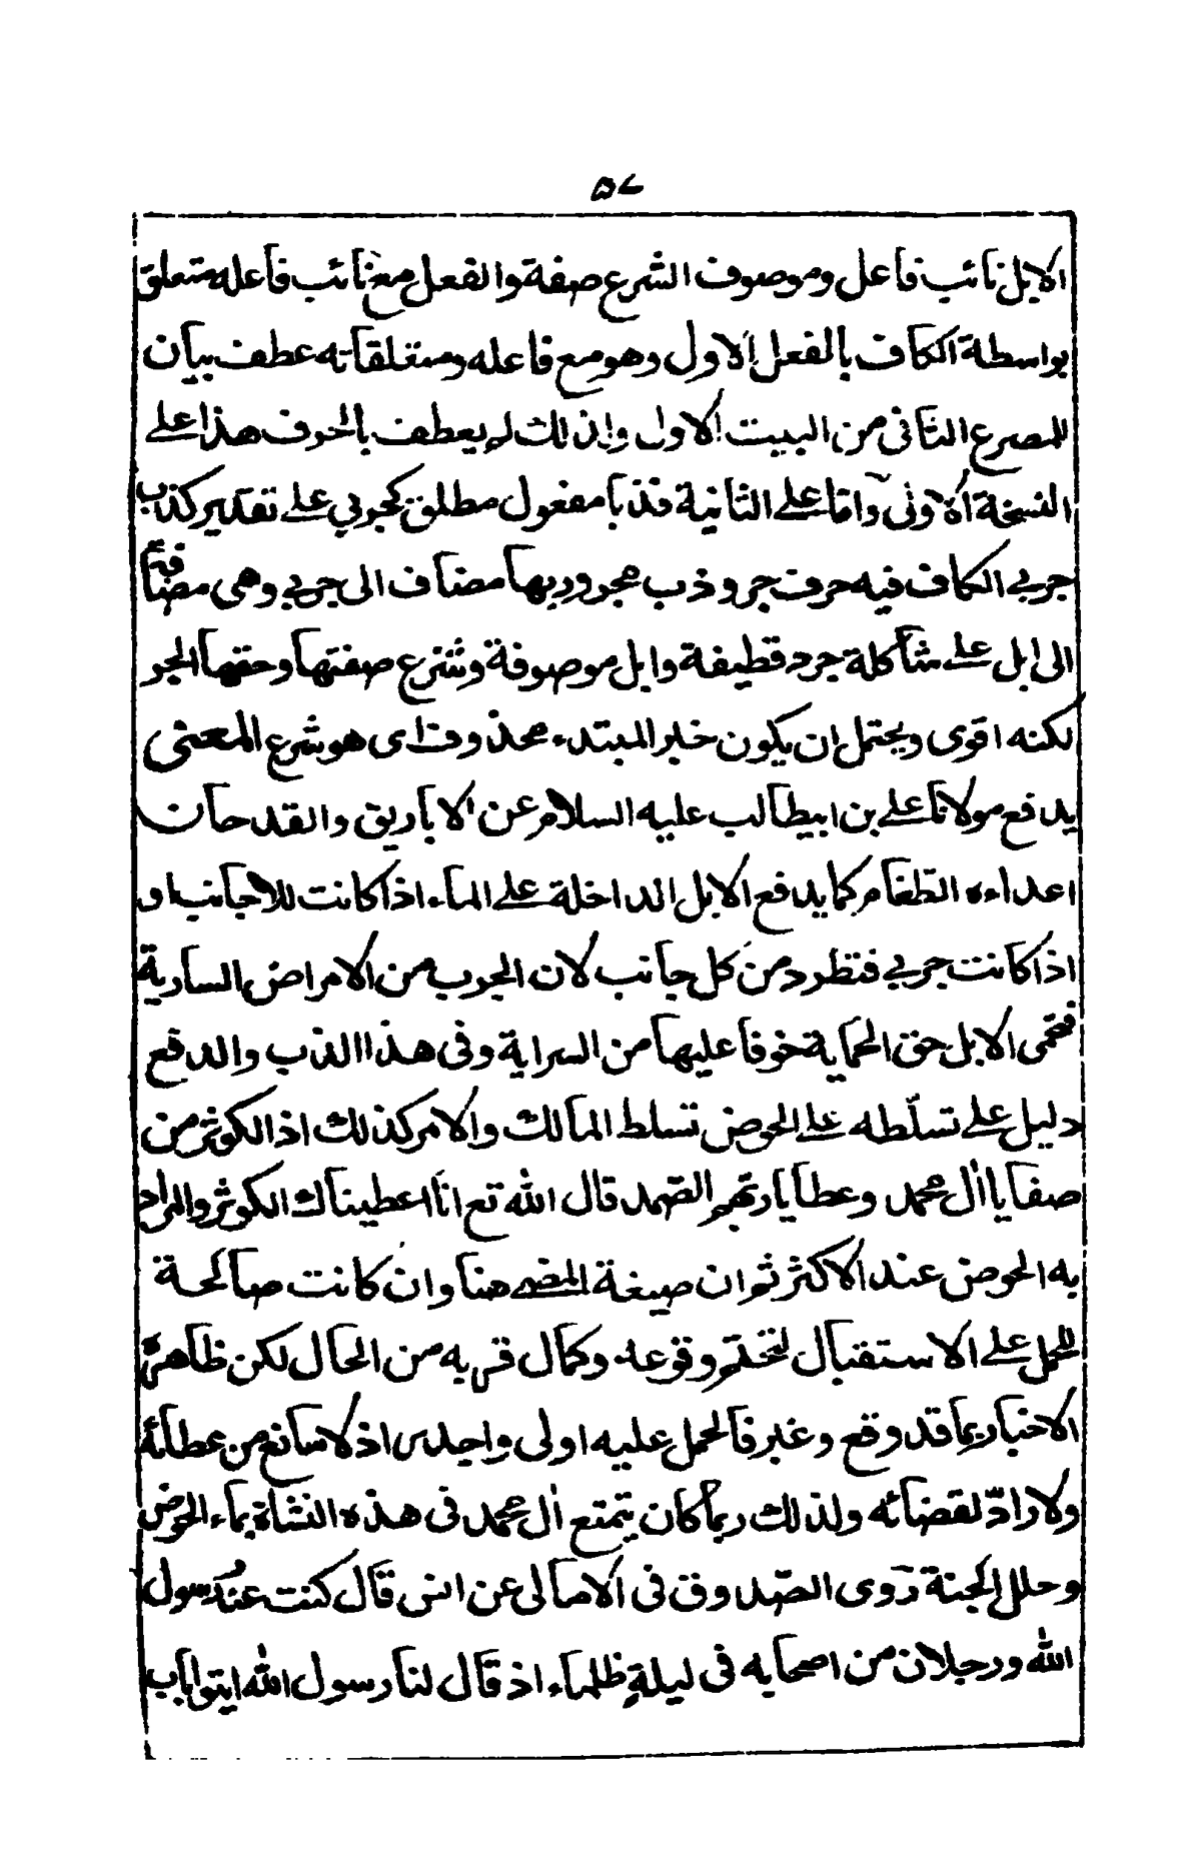 ۵۷
الابل نائب فاعل وموصوف الشرع صفة والفعل مع نائب فاعله متعلق
بواسطة الكاف بالفعل الاول وهو مع فاعله ومتعلقاته عطف بيان
للمصرع الثانى من البيت الاول ولذلك لم يعطف بالحرف هذا على
النسخة الاولى واما على الثانية فذبا مفعول مطلق كجربي على تقدير كذب
جربي الكاف فيه حرف جر وذب مجرور بها مضاف الى جربي وهى مضافة
الى ابل على شاكلة جرد قطيفة وابل موصوفة وشرع صفتها وحقها الجر
لكنه اقوى ويحتمل ان يكون خبر المبتدء محذوف اى هو شرع المعنى
يدافع مولانا على بن ابيطالب عليه السلام عن الاباريق والقدحان
اعداءه الطغام كما يدافع الابل الداخلة على الماء اذا كانت للاجانب او
اذا كانت جربي فتطرد من كل جانب لان الجرب من الامراض السارية
فتحمى الابل حق الحماية خوفا عليها من السراية وفى هذا الذب والدفع
دليل على تسلّطه على الحوض تسلط المالك والامر كذلك اذ الكوثر من
صفايا ال محمد وعطايا ربهم الصّمد قال الله تع انا اعطيناك الكوثر والمراد
به الحوض عند الاكثر ثم ان صيغة المضى هنا وان كانت صالحة
للحمل على الاستقبال لتحتم وقوعه وكمال قربه من الحال لكن ظاهرة
الاخبار بما قد وقع وغبر فالحمل عليه اولى واجدى اذ لا مانع من عطائه
ولا رادّ لقضائه ولذلك ربما كان يتمتع ال محمد فى هذه النشاة بماء الحوض
وحلل الجنة روى الصّدوق فى الامالى عن انس قال كنت عند رسول
الله ورجلان من اصحابه فى ليلةٍ ظلماء اذ قال لنا رسول الله ايتوا باب